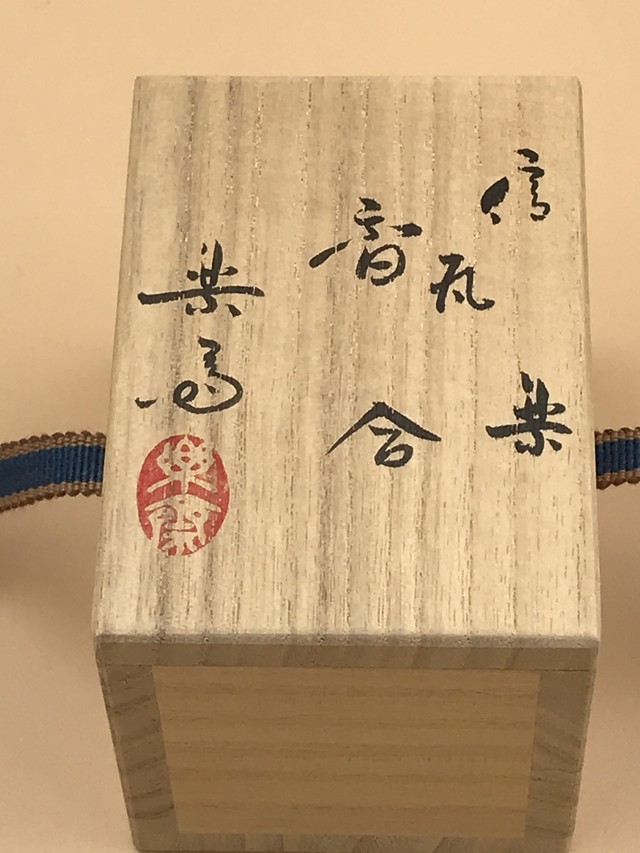 信楽
香合
楽斎